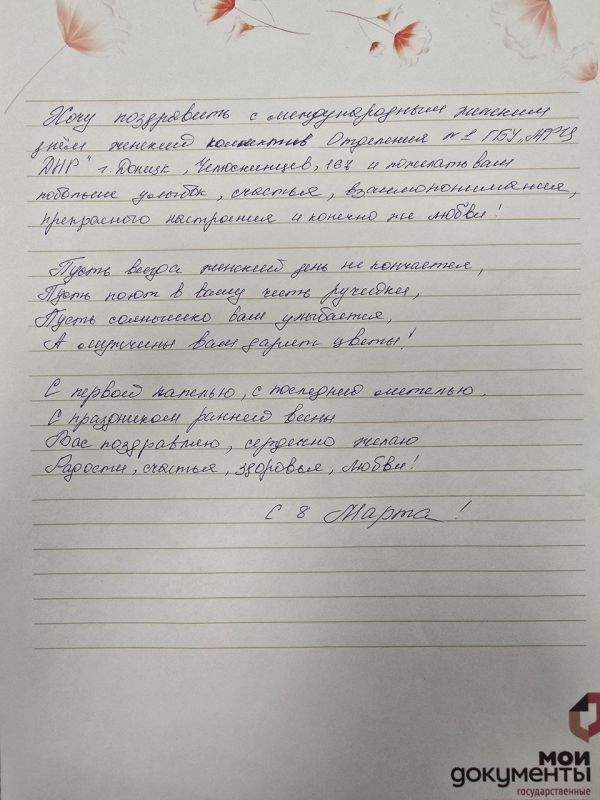 Хочу поздравить с международным женским
днём женский коллектив Отделения №1 ГБУ „МФЦ
ДНР" г. Донецк, Челюскинцев, 167 и пожелать вам
побольше улыбок, счастья, взаимопонимания,
прекрасного настроения и конечно же любви!
Пусть всегда женский день не кончается,
Пусть поют в вашу честь ручейки,
Пусть солнышко вам улыбается,
А мужчины вам дарят цветы!
С первой капелью, с последней метелью,
С праздником ранней весны
Вас поздравляю, сердечно желаю
Радости, счастья, здоровья, любви!
С 8 Марта!
мои
документы
государственные